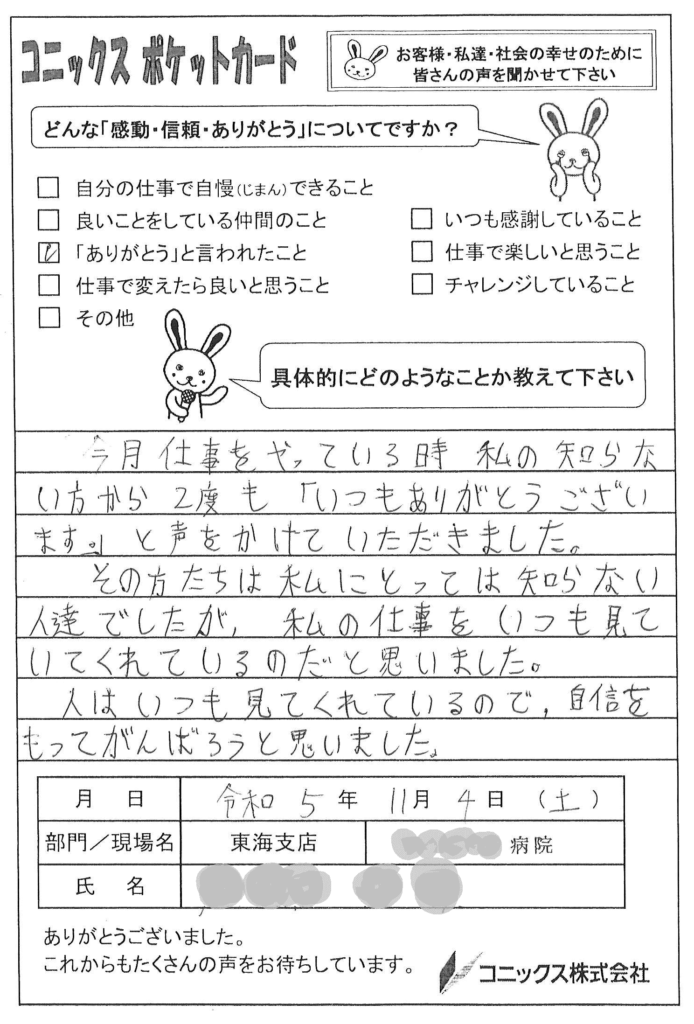 コニックス ポケットカード
お客様・私達・社会の幸せのために
皆さんの声を聞かせて下さい
どんな「感動・信頼・ありがとう」についてですか?
自分の仕事で自慢(じまん)できること
良いことをしている仲間のこと
いつも感謝していること
「ありがとう」と言われたこと
仕事で楽しいと思うこと
仕事で変えたら良いと思うこと
チャレンジしていること
その他
具体的にどのようなことか教えて下さい
今月仕事をやっている時 私の知らな
い方から2度も「いつもありがとうござい
ます。」と声をかけていただきました。
その方たちは私にとっては知らない
人達でしたが、私の仕事をいつも見て
いてくれているのだと思いました。
人はいつも見てくれているので、自信を
もってがんばろうと思いました。
月 日 令和 5年 11月 4日 (土)
部門/現場名 東海支店 病院
氏 名
ありがとうございました。
これからもたくさんの声をお待ちしています。
コニックス株式会社